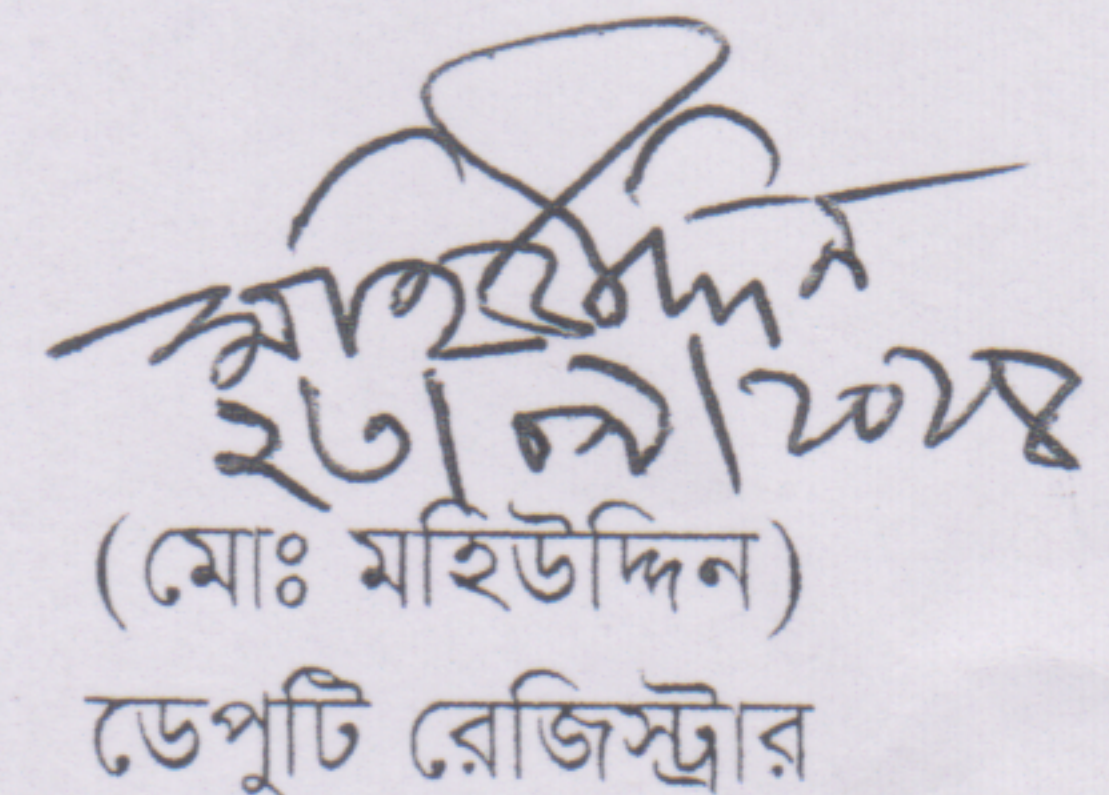 মহিউদ্দিন
২৩|০৯|২০২৪
(মোঃ মহিউদ্দিন)
ডেপুটি রেজিস্ট্রার